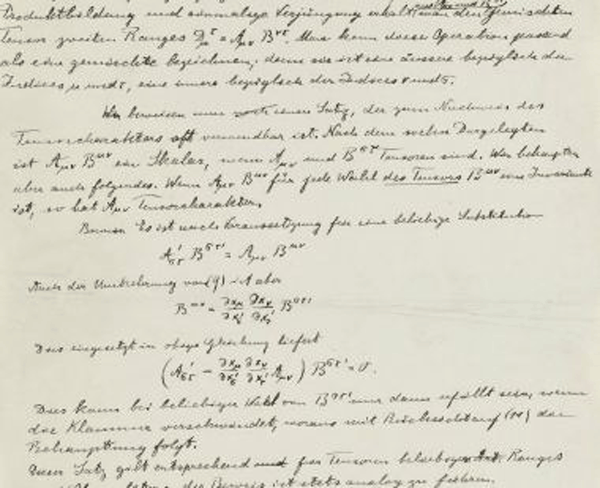 Produktbildung und nochmalige Verjüngung erhält man den gemischten
Tensor zweiten Ranges D_μ^τ = A_μν B^ντ. Man kann diese Operation passend
als eine gemischte bezeichnen; denn sie ist eine äussere bezüglich der
Indices μ und τ, eine innere bezüglich der Indices ν und σ.
Wir beweisen nun noch einen Satz, der zum Nachweis des
Tensorcharakters oft verwendbar ist. Nach dem soeben Dargelegten
ist A_μν B^μν ein Skalar, wenn A_μν und B^στ Tensoren sind. Wir behaupten
aber auch folgendes. Wenn A_μν B^μν für jede Wahl des Tensors B^μν eine Invariante
ist, so hat A_μν Tensorcharakter.
Beweis. Es ist nach Voraussetzung für eine beliebige Substitution
A_στ' B^στ' = A_μν B^μν
Nach der Umkehrung von (9) ist aber
B^μν = ∂x_μ/∂x_σ' ∂x_ν/∂x_τ' B^στ'
Dies eingesetzt in obige Gleichung liefert
(A_στ' − ∂x_μ/∂x_σ' ∂x_ν/∂x_τ' A_μν) B^στ' = 0.
Dies kann bei beliebiger Wahl von B^στ' nur dann erfüllt sein, wenn
die Klammer verschwindet, woraus mit Rücksicht auf (11) die
Behauptung folgt.
Dieser Satz gilt entsprechend für Tensoren beliebigen Ranges
der Beweis ist stets analog zu führen.